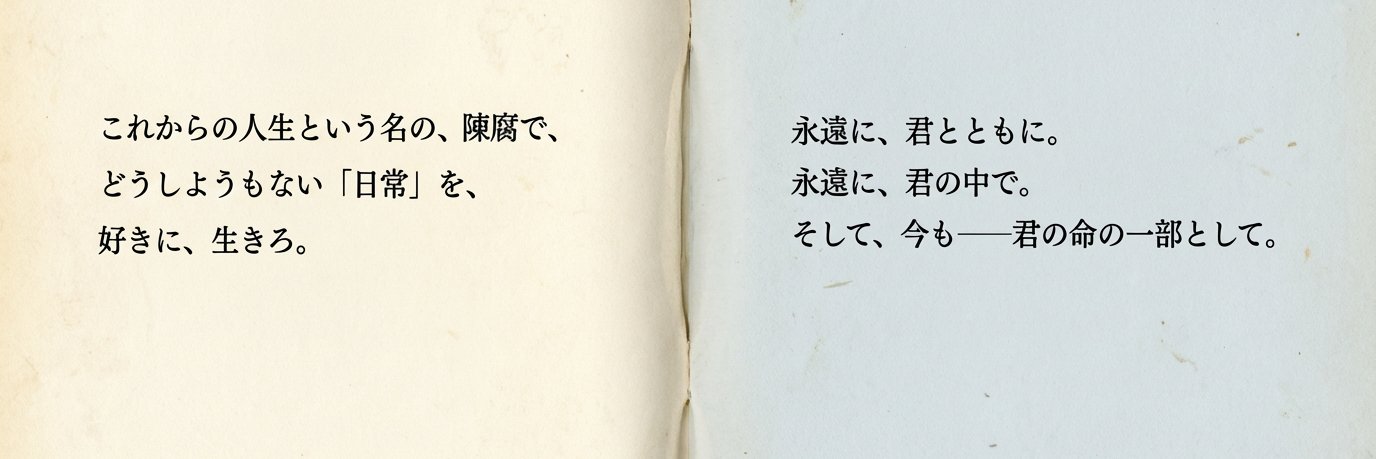 これからの人生という名の、陳腐で、
どうしようもない「日常」を、
好きに、生きろ。
永遠に、君とともに。
永遠に、君の中で。
そして、今も──君の命の一部として。